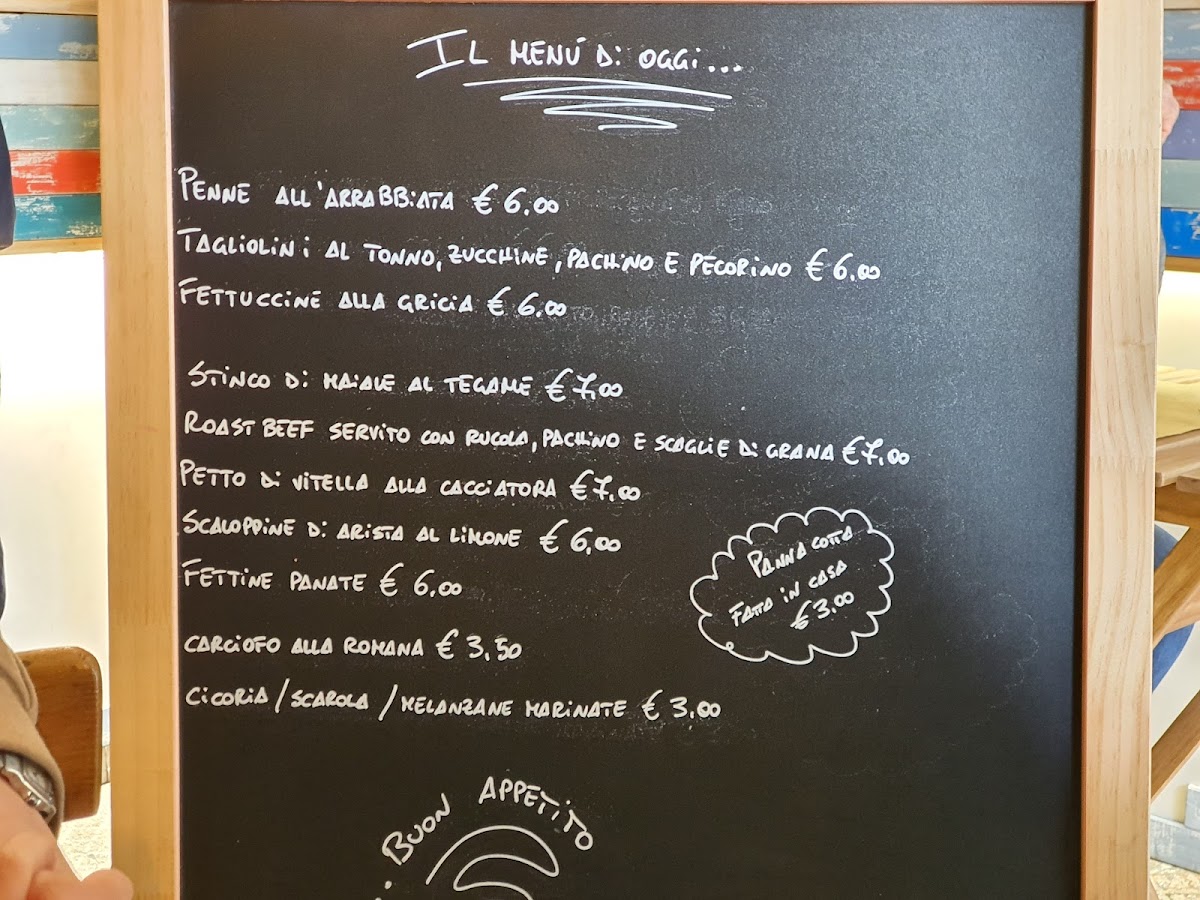 IL MENÚ Di OGGi...
PENNE ALL'ARRABBiATA € 6.00
TAGLIOLINi AL TONNO, ZUCCHINE, PACHINO E PECORINO € 6.00
FETTUCCINE ALLA GRICIA € 6.00
STINCO Di MAIALE AL TEGAME € 7,00
ROAST BEEF SERVITO CON RUCOLA, PACHINO E SCAGLIE Di GRANA € 7.00
PETTO Di VITELLA ALLA CACCIATORA € 7.00
SCALOPPINE Di ARISTA AL LIMONE € 6,00
FETTINE PANATE € 6.00
PANNA COTTA
FATTA IN CASA
€ 3.00
CARCIOFO ALLA ROMANA € 3,50
CICORIA/SCAROLA/MELANZANE MARINATE € 3.00
BUON APPETITO